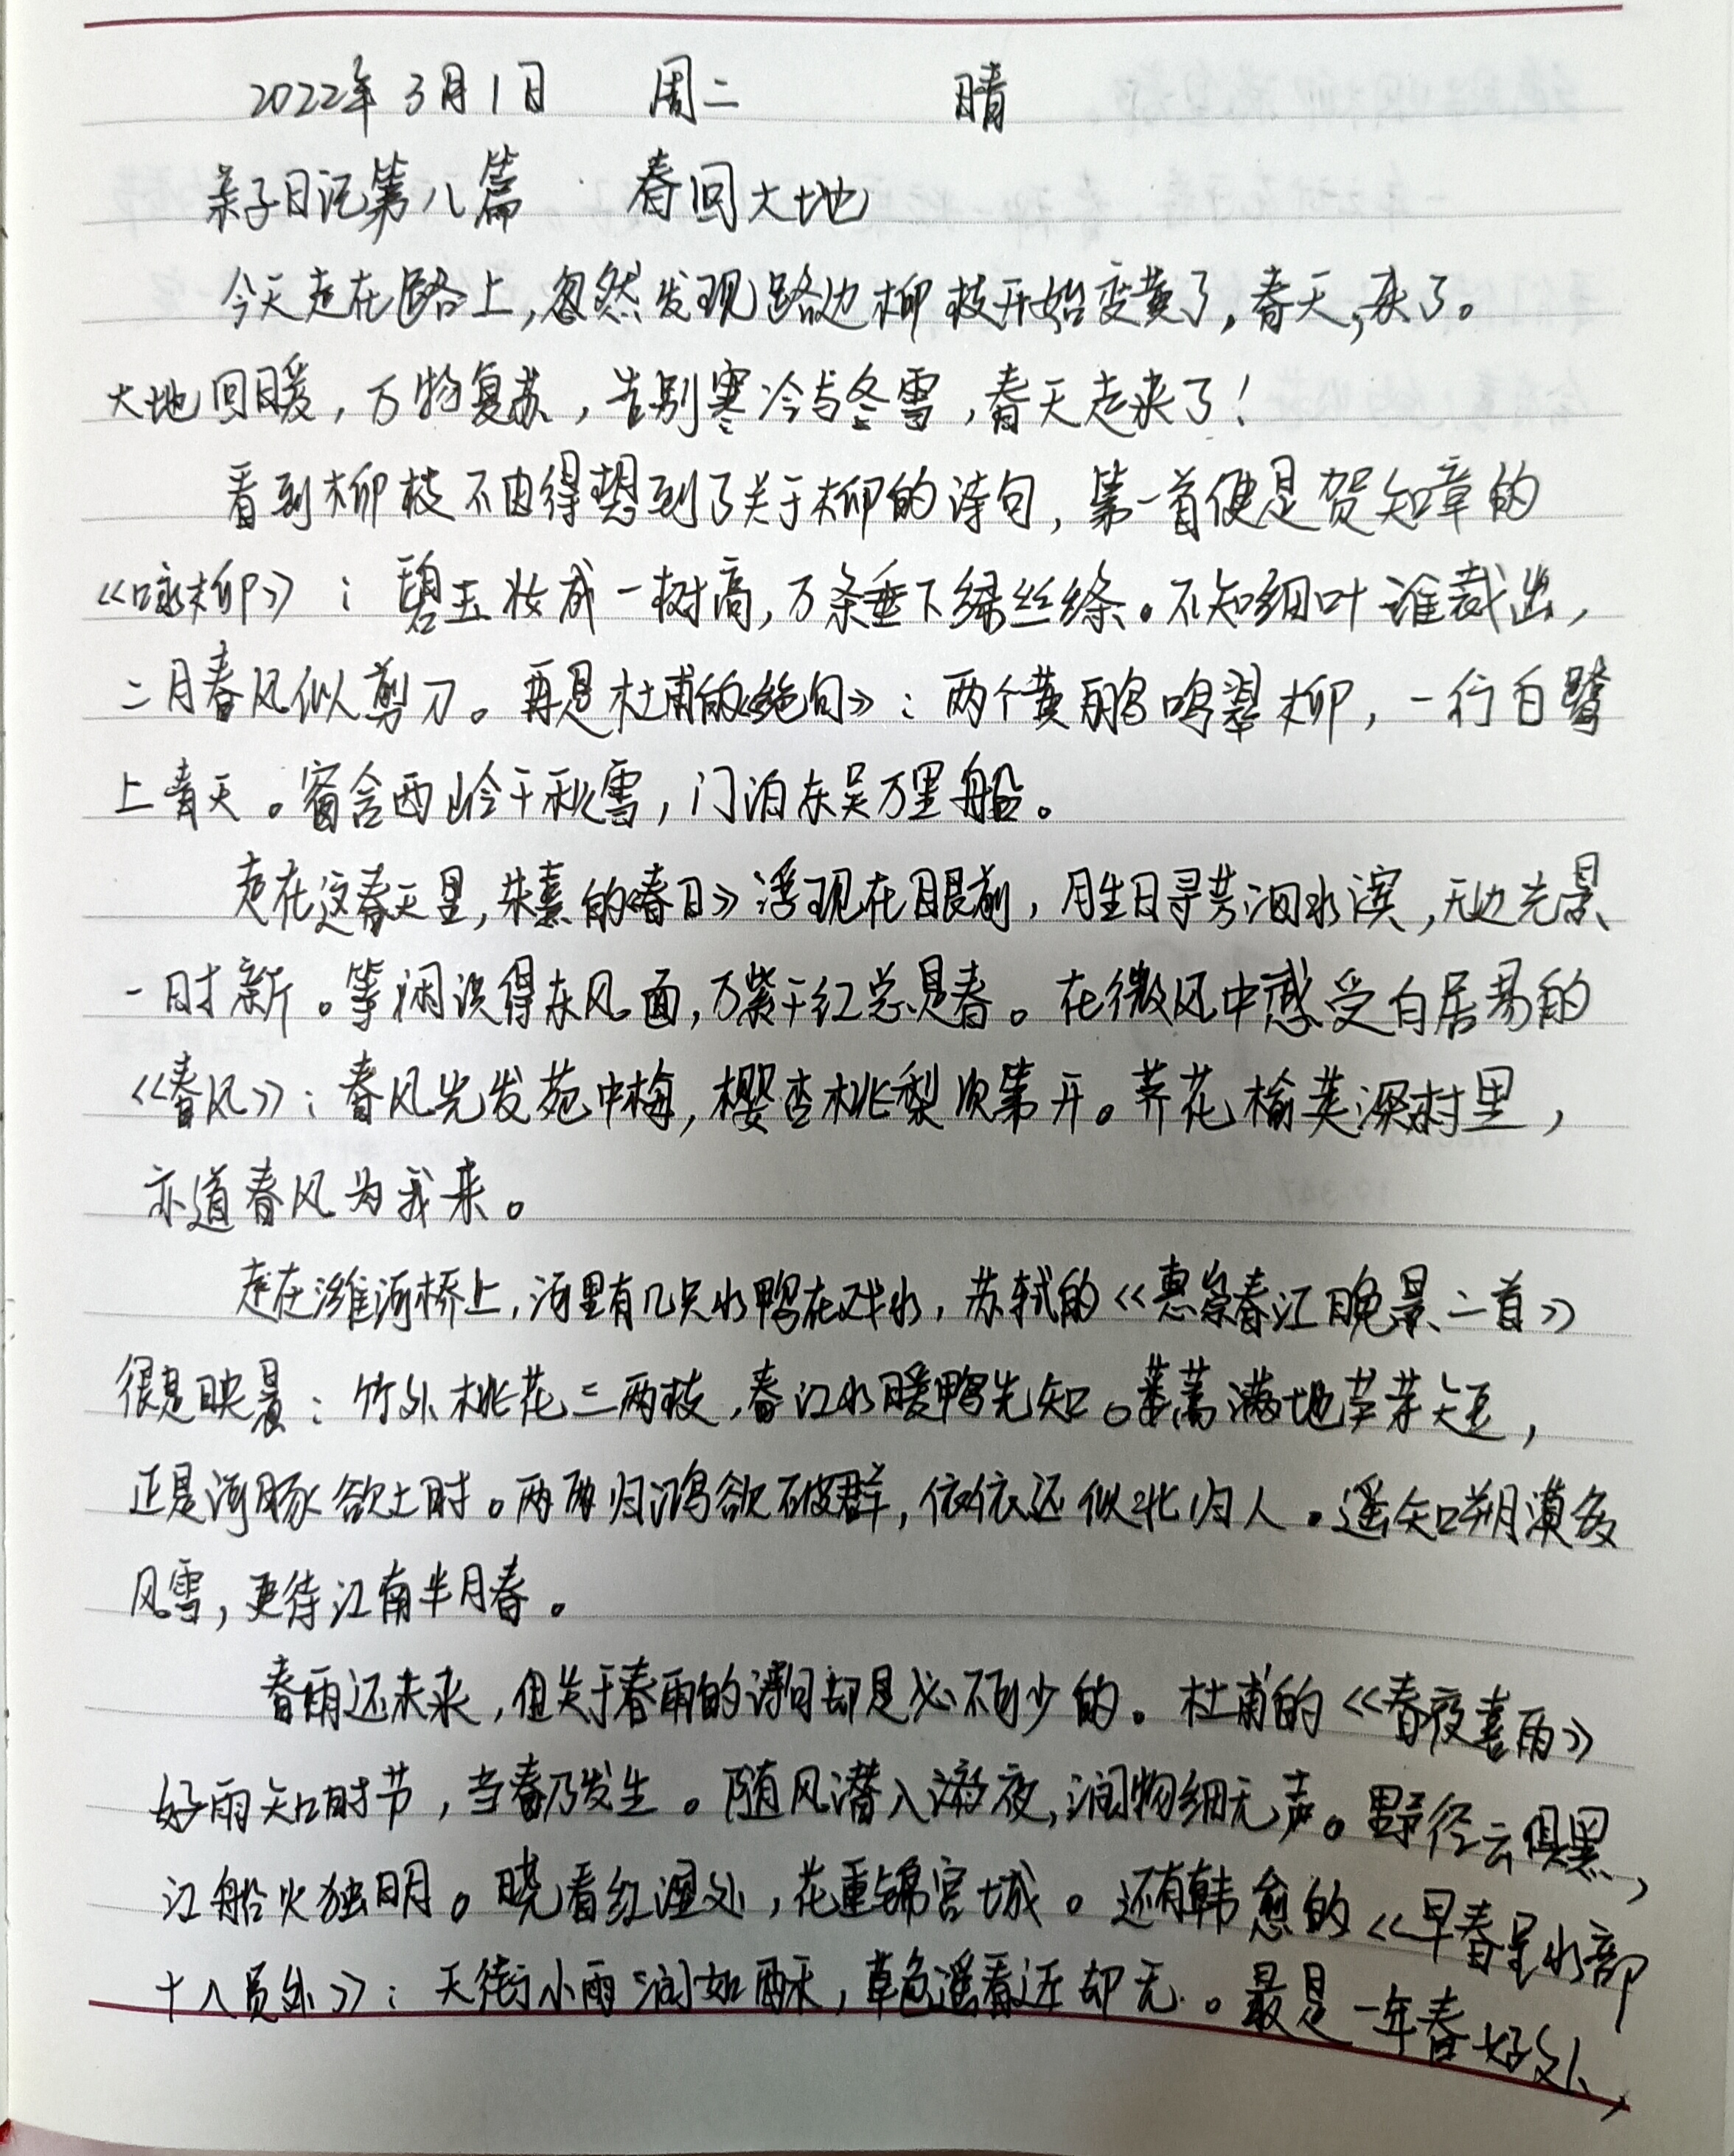 2022年3月1日 周二 晴
亲子日记第八篇 春回大地
今天走在路上,忽然发现路边柳枝开始变黄了,春天,来了。
大地回暖,万物复苏,告别寒冷与冬雪,春天走来了!
看到柳枝不由得想到了关于柳的诗句,第一首便是贺知章的
《咏柳》:碧玉妆成一树高,万条垂下绿丝绦。不知细叶谁裁出,
二月春风似剪刀。再是杜甫的《绝句》:两个黄鹂鸣翠柳,一行白鹭
上青天。窗含西岭千秋雪,门泊东吴万里船。
走在这春天里,朱熹的《春日》浮现在眼前,胜日寻芳泗水滨,无边光景
一时新。等闲识得东风面,万紫千红总是春。在微风中感受白居易的
《春风》:春风先发苑中梅,樱杏桃梨次第开。荠花榆荚深村里,
亦道春风为我来。
走在潍河桥上,河里有几只水鸭在戏水,苏轼的《惠崇春江晚景二首》
很是映景:竹外桃花三两枝,春江水暖鸭先知。蒌蒿满地芦芽短,
正是河豚欲上时。两两归鸿欲破群,依依还似北归人。遥知朔漠多
风雪,更待江南半月春。
春雨还未来,但关于春雨的诗句却是必不可少的。杜甫的《春夜喜雨》
好雨知时节,当春乃发生。随风潜入夜,润物细无声。野径云俱黑,
江船火独明。晓看红湿处,花重锦官城。还有韩愈的《早春呈水部
十八员外》:天街小雨润如酥,草色遥看近却无。最是一年春好处,